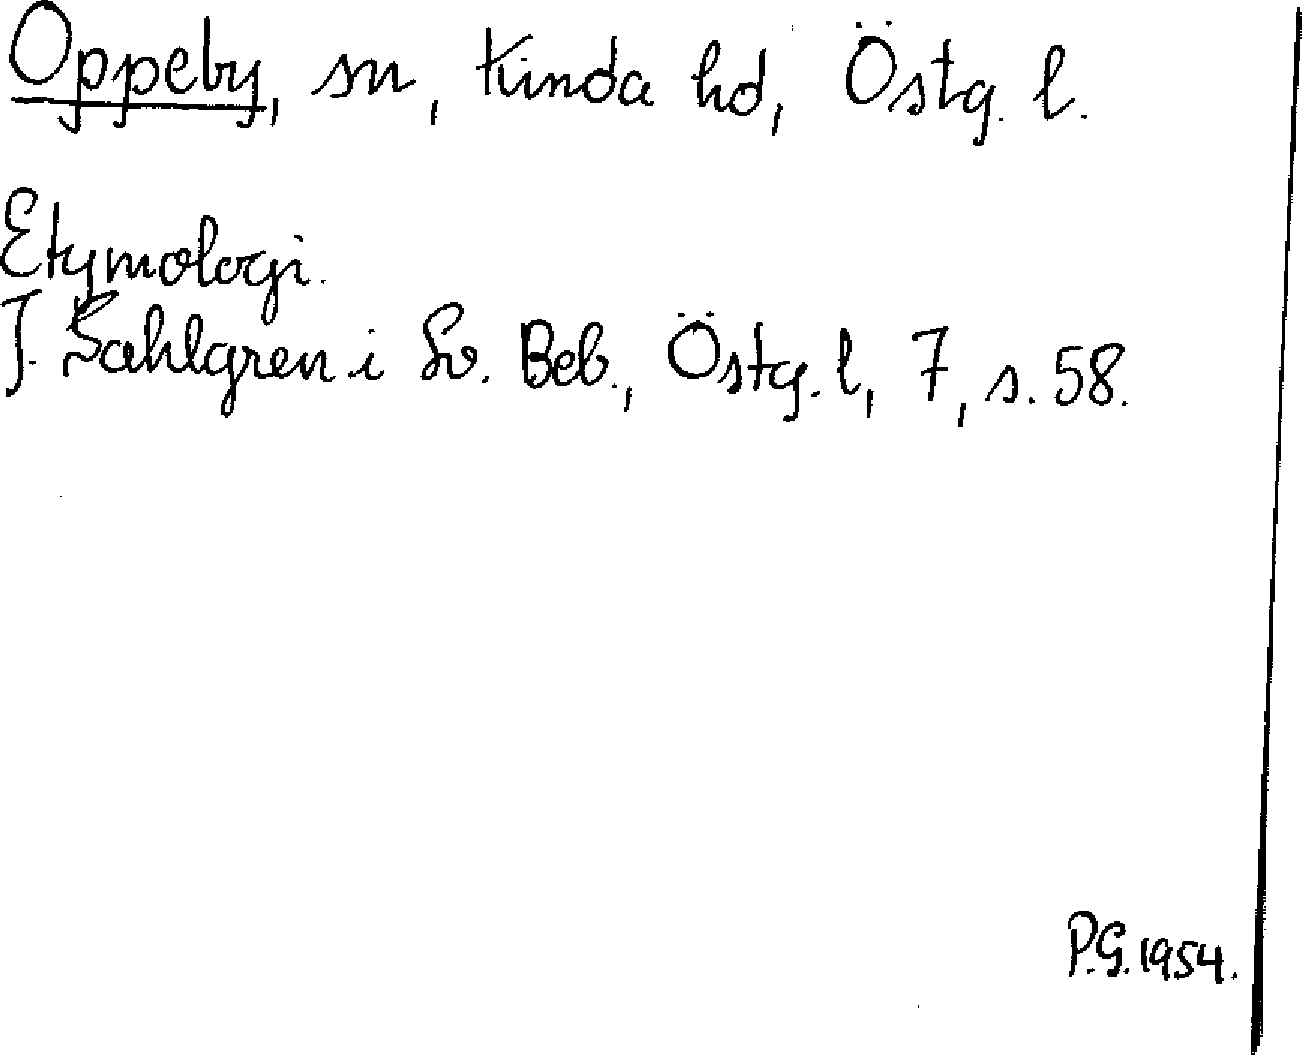 Oppeby, sn, Kinda hd, Östg. l.
Etymologi.
J. Sahlgren i Sv. Beb., Östg. l, 7, s. 58.
P.G. 1954.